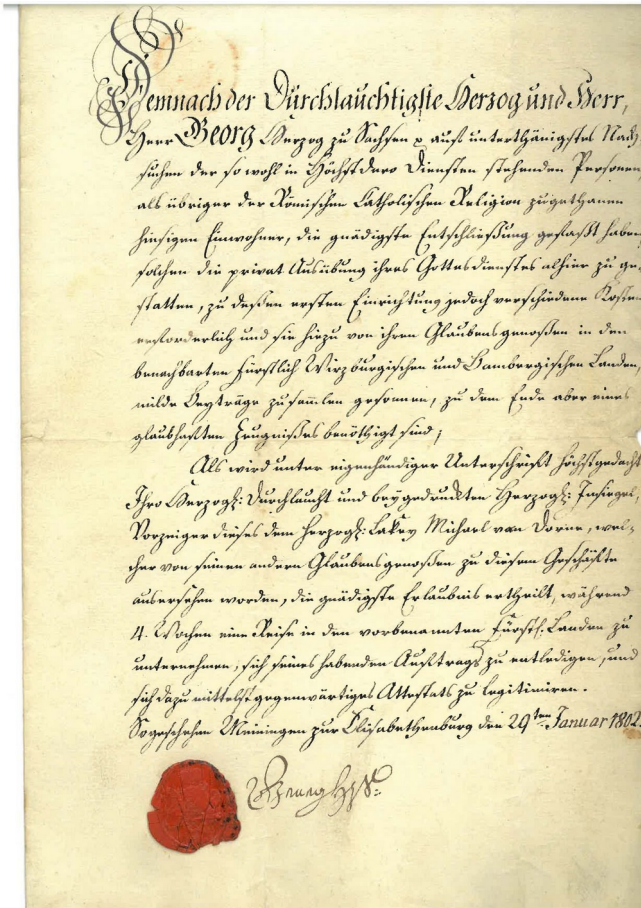 Demnach der Durchlauchtigste Herzog und Herr,
Herr Georg Herzog zu Sachsen p auf unterthänigstes Nach
suchen der sowohl in Höchst Dero Diensten stehenden Personen
als übriger der Römischen Catholischen Religion zugethanen
hiesigen Einwohner, die gnädigste Entschließung gefaßt haben
solchen die privat Ausübung ihres Gottesdienstes alhier zu ge-
statten, zu deßen ersten Einrichtung jedoch verschiedene Kosten
erforderlich und sie hiezu von ihren Glaubensgenoßen in den
benachbarten Fürstlich Wirzburgischen und Bambergischen Landen,
milde Beyträge zu samlen gesonnen, zu dem Ende aber eines
glaubhaften Zeugnißes benöthigt sind;
Als wird unter eigenhändiger Unterschrift höchstgedacht
Ihro Herzogl: Durchlaucht und beygedruckten Herzogl: Insiegel,
Vorzeiger dieses dem Herzogl: Lakey Michael van Dorne, wel-
cher von seinen andern Glaubensgenoßen zu diesem Geschäfte
ausersehen worden, die gnädigste Erlaubnis ertheilt, während
4. Wochen eine Reise in den vorbenannten Fürstl: Landen zu
unternehmen, sich seines habenden Auftrags zu entledigen, und
sich dazu mittelst gegenwärtiges Attestats zu legitimiren.
So geschehen Meiningen zur Elisabethenburg den 29ten Januar 1802.
Georg HzS: